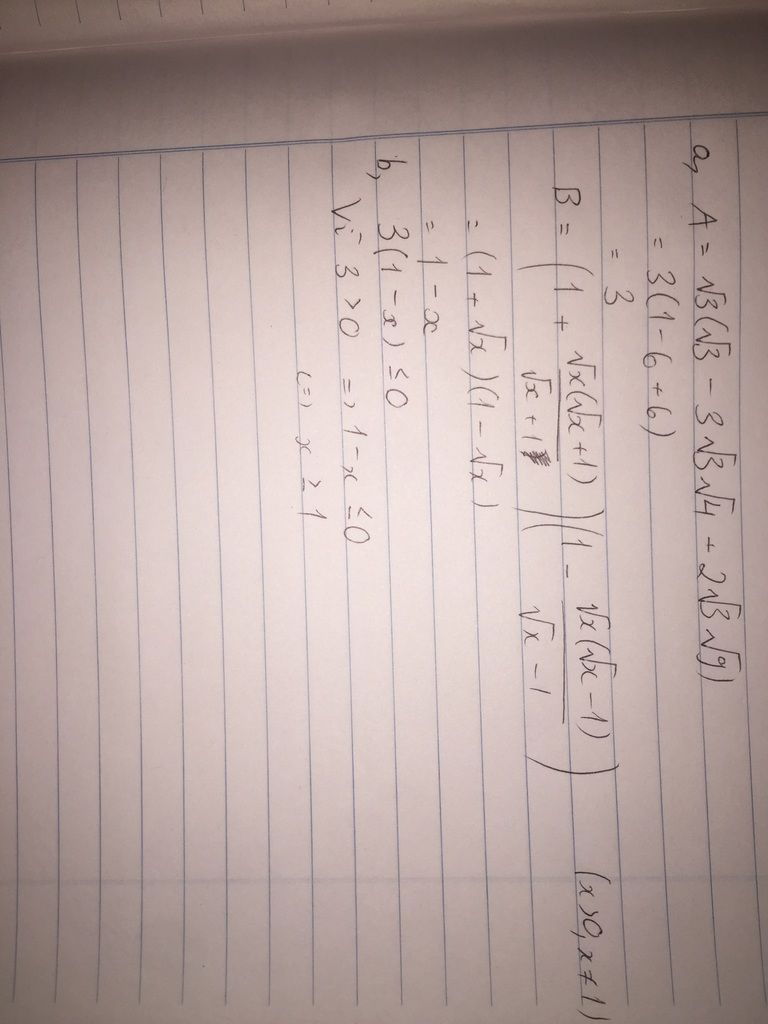 a, A = √3(√3 - 3√3√4 + 2√3√9)
= 3(1 - 6 + 6)
= 3
B = (1 + √x(√x+1)/√x+1)(1 - √x(√x-1)/√x-1) (x>0, x≠1)
= (1 + √x)(1 - √x)
= 1 - x
b, 3(1 - x) ≤ 0
Vì 3 > 0 => 1 - x ≤ 0
(=) x ≥ 1